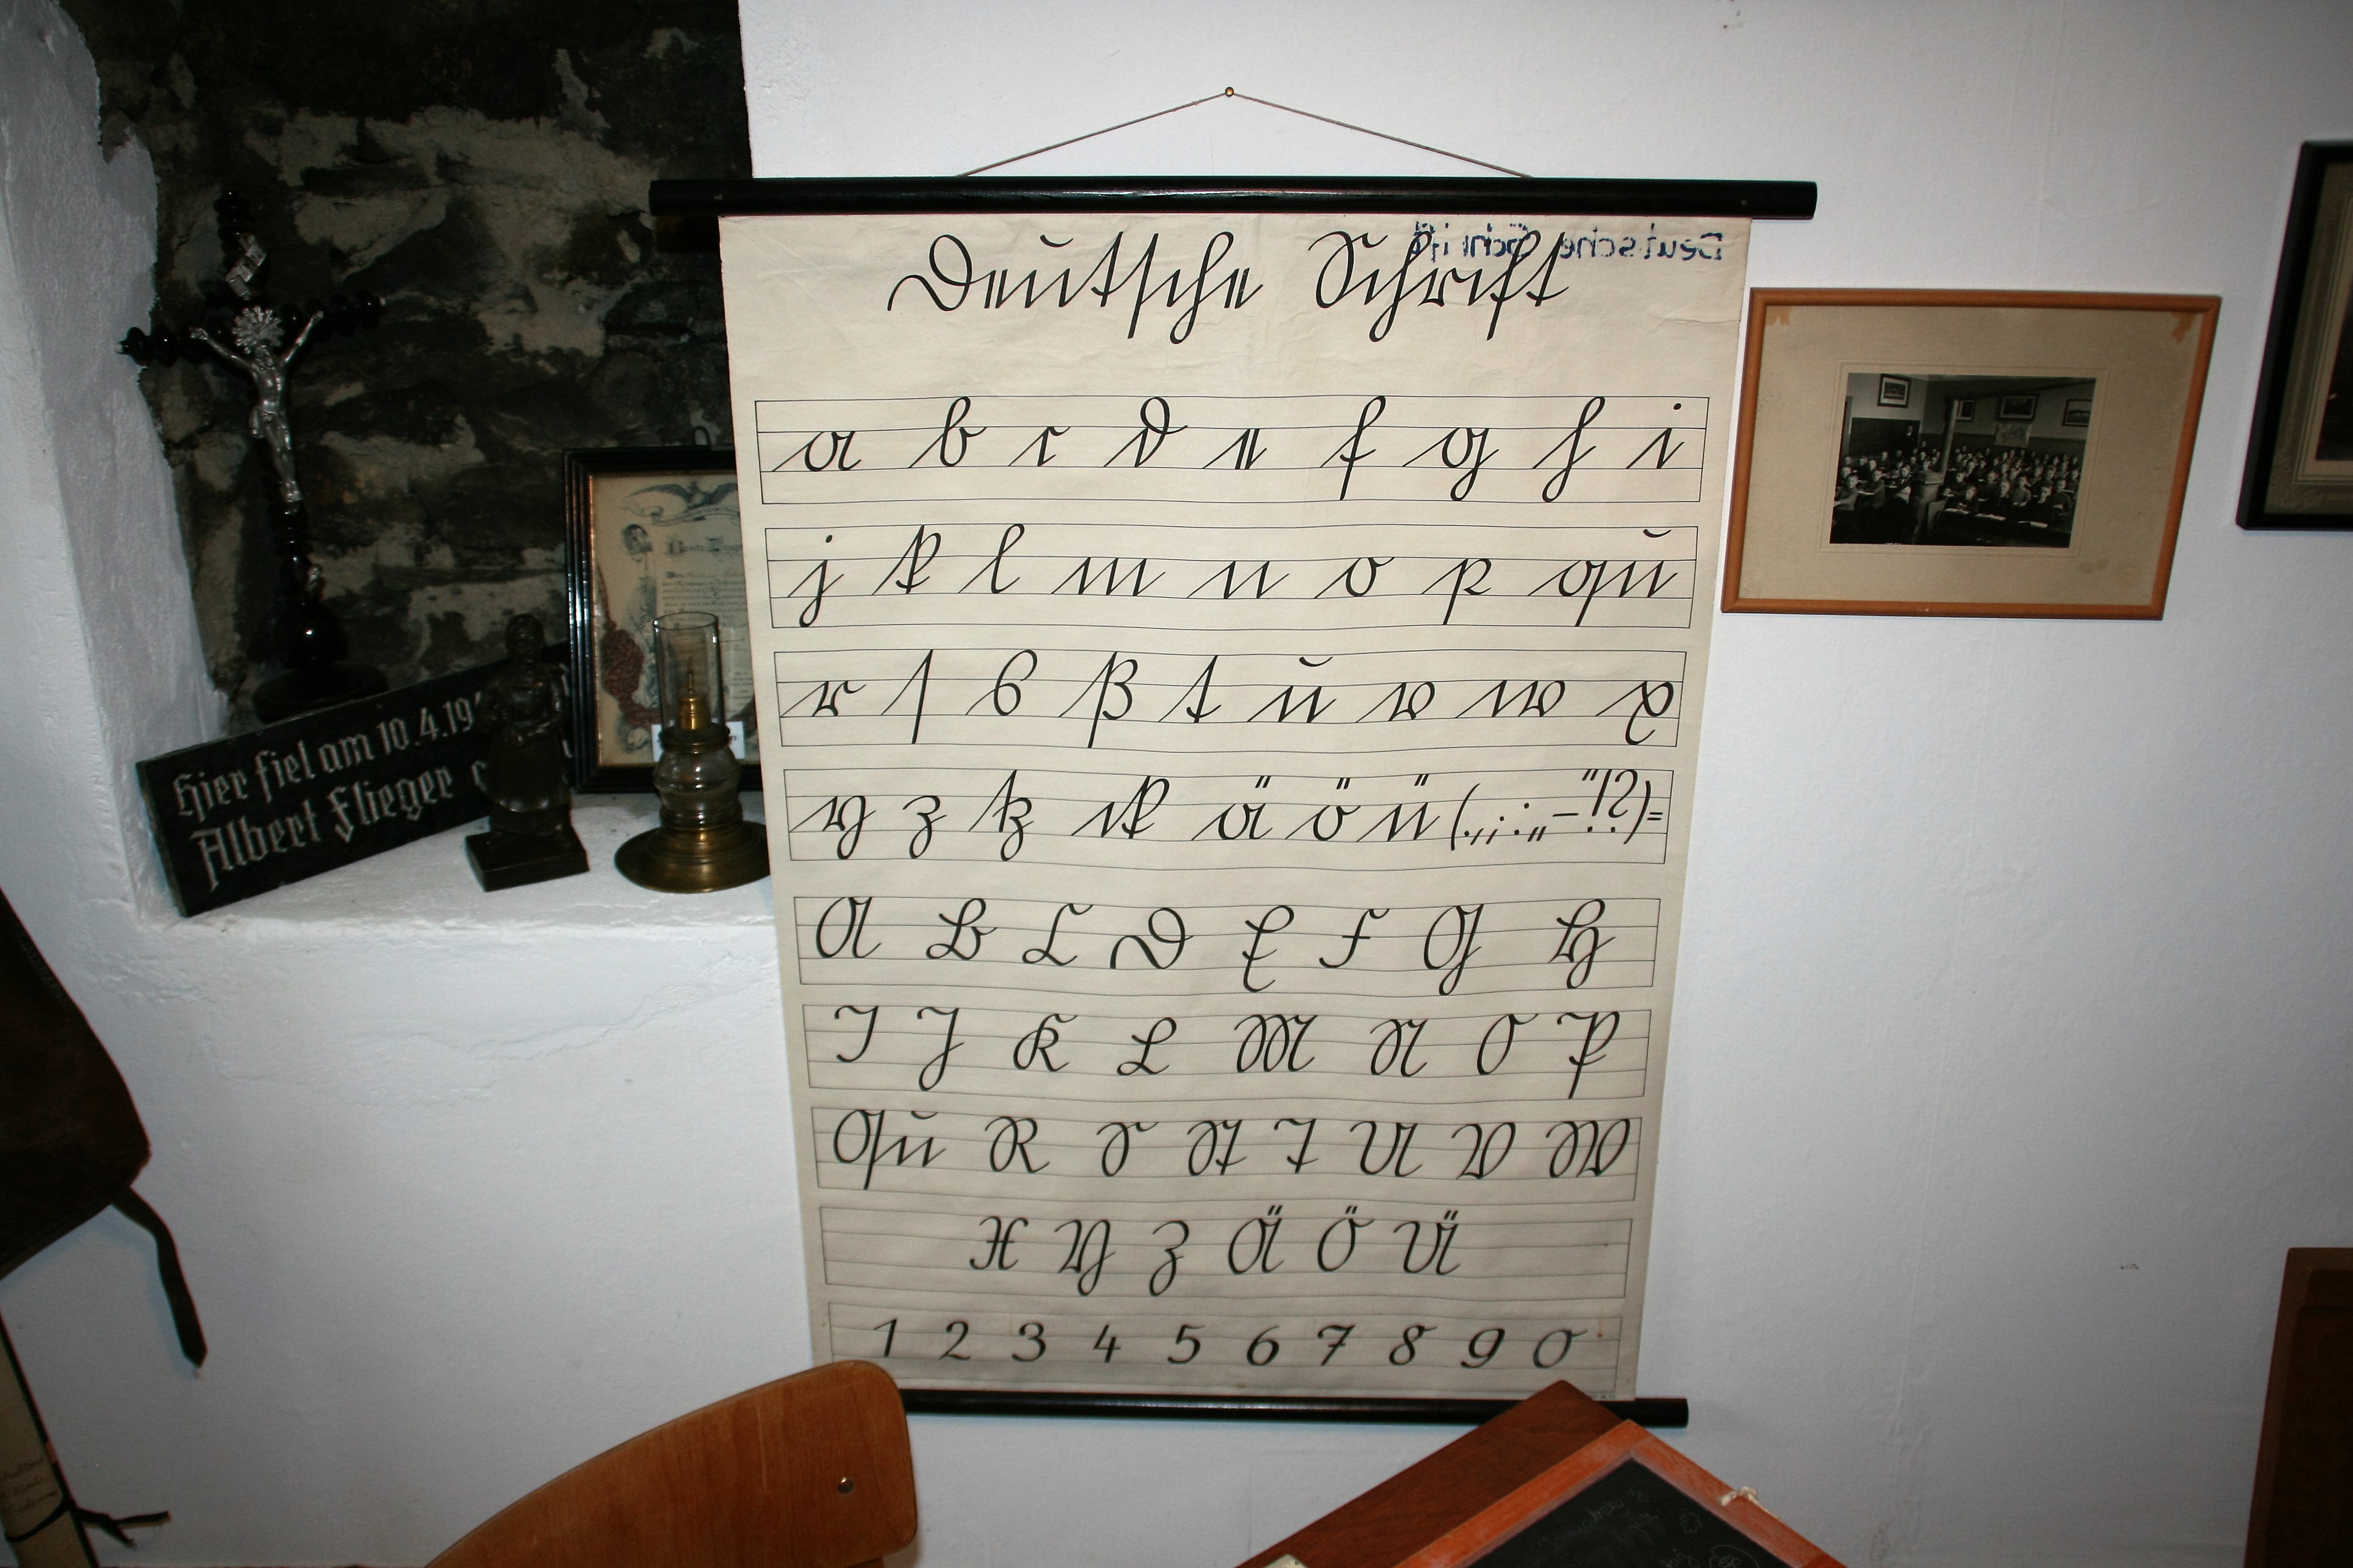 Deutsche Schrift
Deutsche Schrift
a b c d e f g h i
j k l m n o p qu
r ſ s ß t u v w x
y z tz ck ä ö ü (.,;:„-"!?)=
A B C D E F G H
I J K L M N O P
Qu R S St T U V W
X Y Z Ä Ö Ü
1 2 3 4 5 6 7 8 9 0
Hier fiel am 10.4.19
Albert Flieger